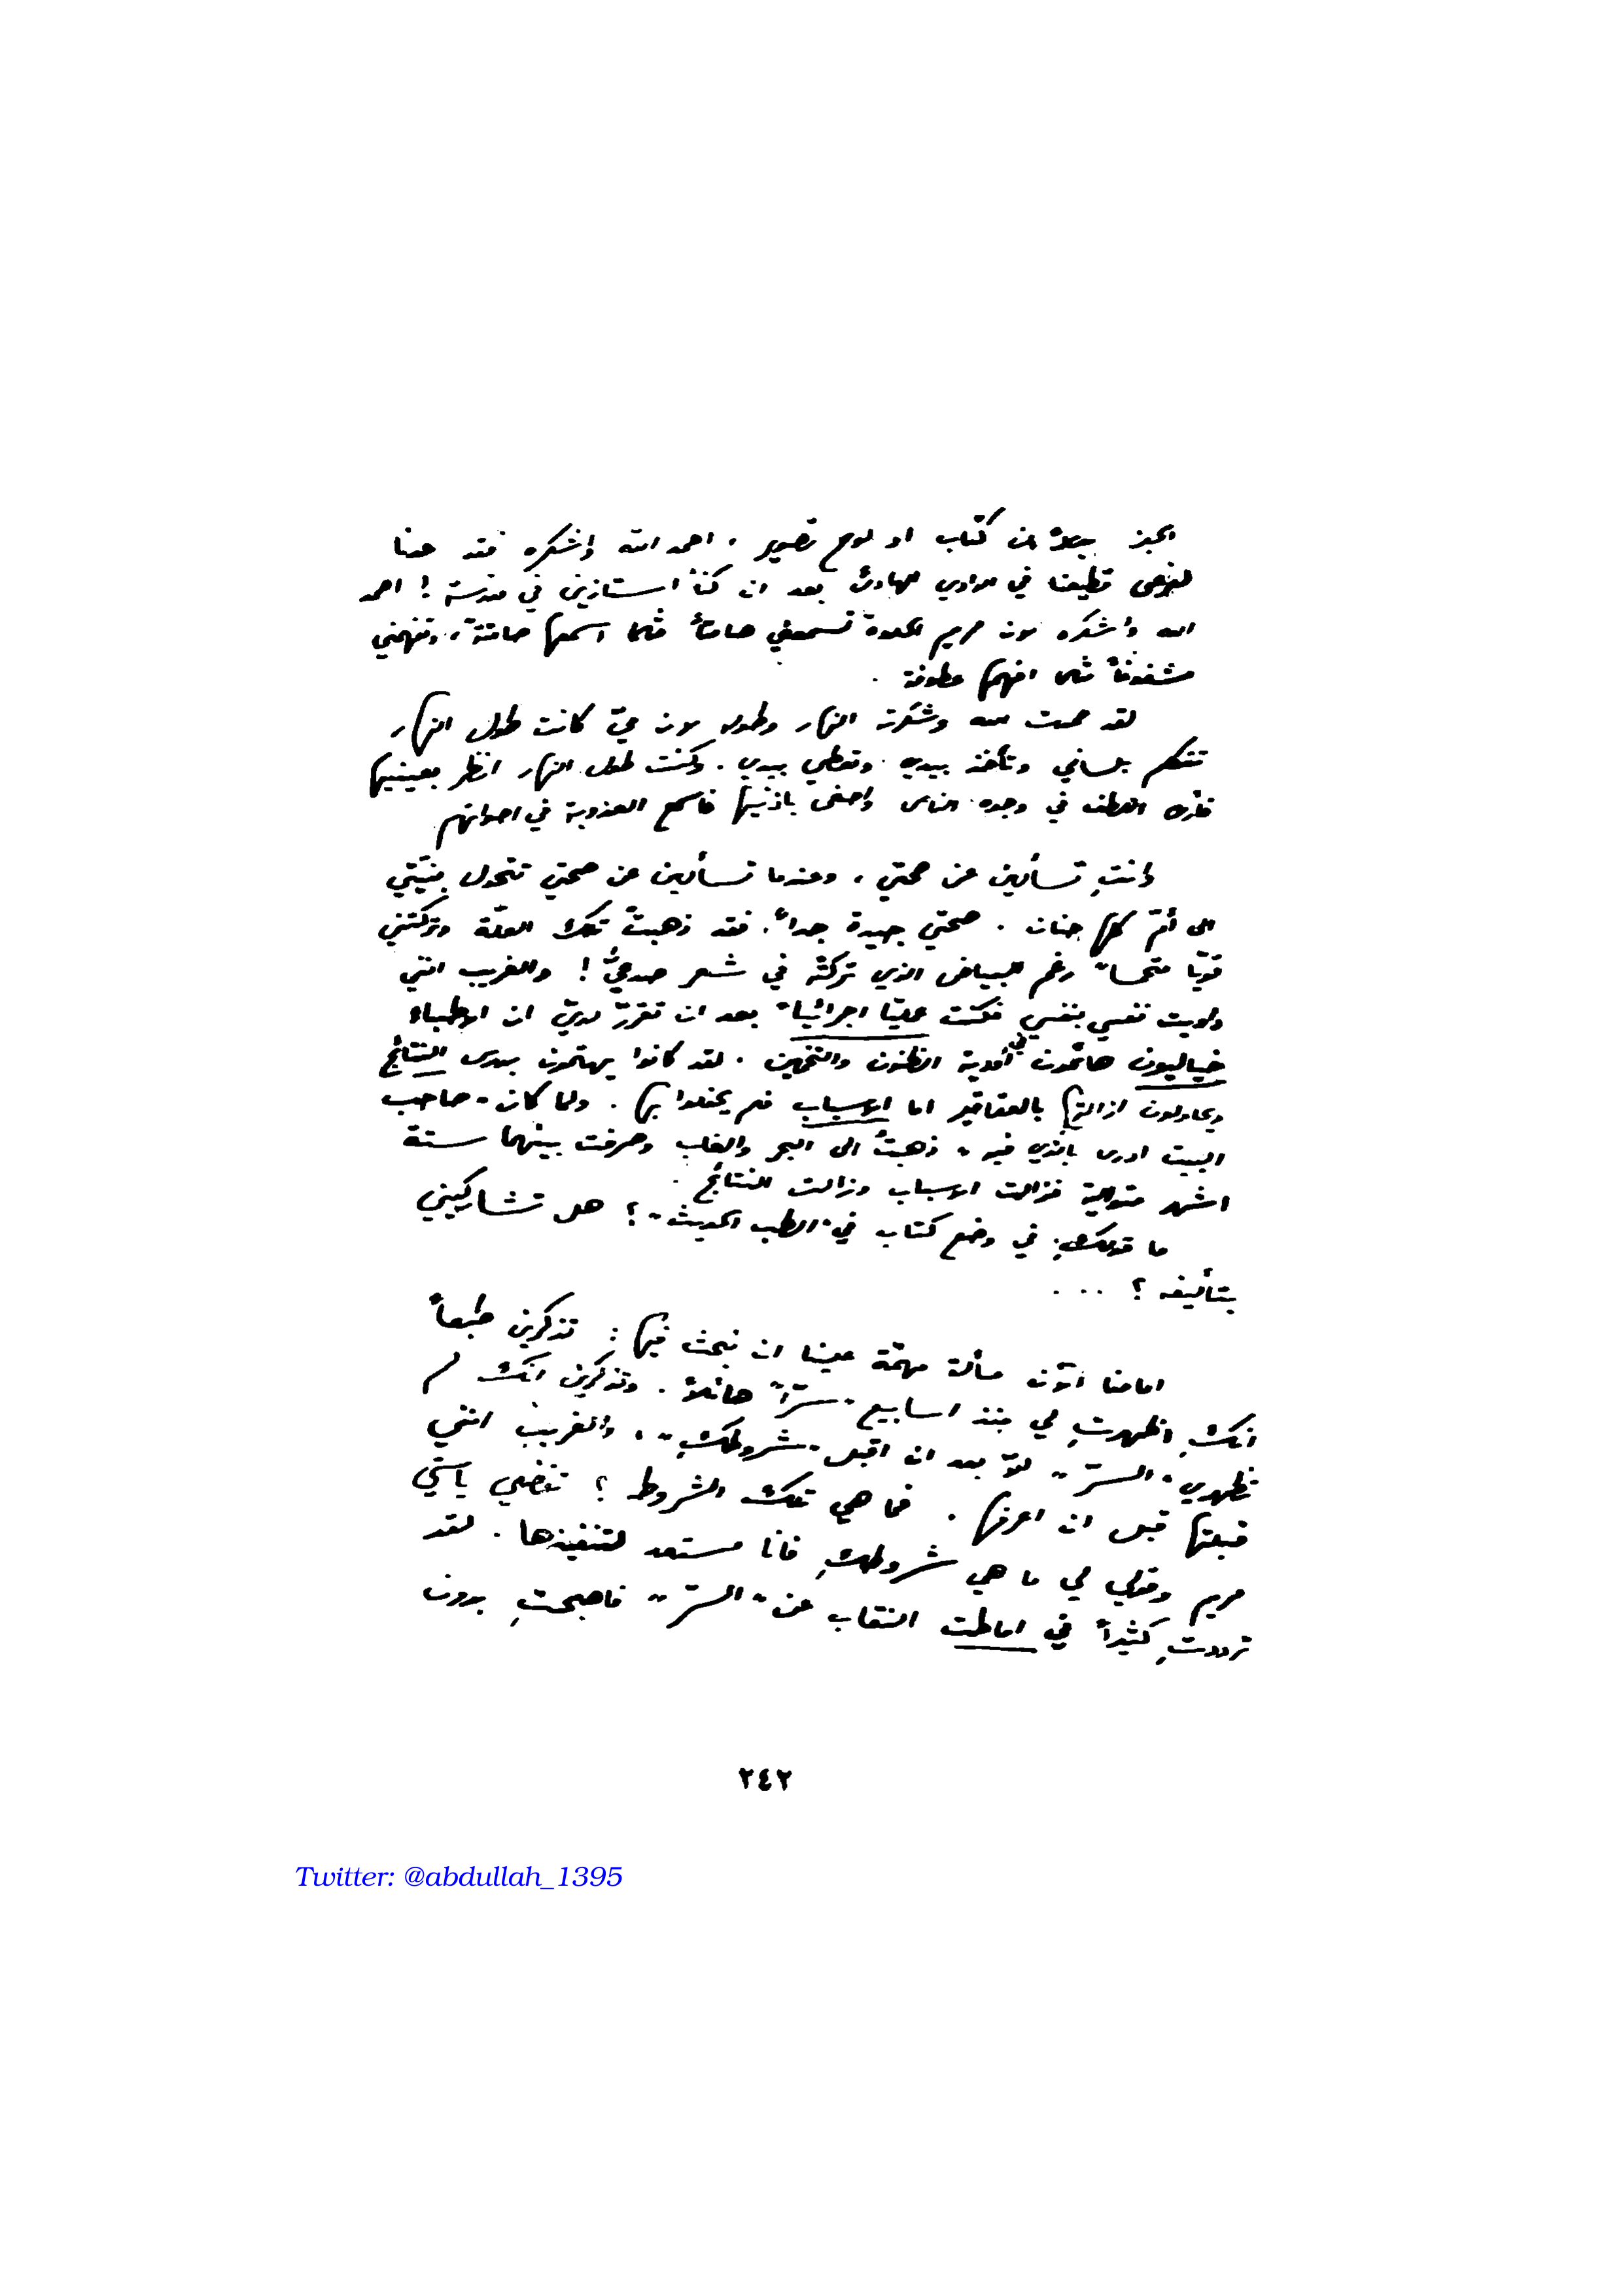 بديلاً من كتاب او لوح تصوير. احمد الله واشكره فقد عدنا
نرعى قطيعنا في الوادي الهادئ بعد ان كنا استاذين في مدرسة! احمد
الله واشكره لان مريم الحلوة تسمعني صامتاً مثلما اسمعها صامتة، وتفهمني
مشغوفاً مثلما افهمها عطوفة.
لقد حمدت الله وشكرته النهار وطوله لان ميّ كانت طول النهار
تتكلم بلساني وتأخذ بيدي وتعطي بيدي. وكنت طول النهار انظر بعينيها
فأرى اللطف في وجوه الناس واصغى باذنيها فاسمع العذوبة في اصواتهم
وانتِ تسألين عن صحتي، وعندما تسألين عن صحتي تتحول بنيّتي
الى أمّ كلها حنان. صحتي جيدة جداً. فقد ذهبتْ تلك العلّة وتركتني
قويّا متحمساً رغم البياض الذي تركته في شعر صدغيّ! والغريب انني
داويت نفسي بنفسي فكنت عمليّا اجرائيا بعد ان تقررّ لديّ ان الاطباء
خياليون هائمون في أودية الظنون والتخمين. لقد كانوا يهتمون بدرس النتائج
ويحاولون ازالتها بالعقاقير اما الاسباب فلم يحفلوا بها. ولما كان "صاحب
البيت ادرى بالذي فيه" ذهبتُ الى البحر والغاب وصرفت بينهما ستة
اشهر متوالية فزالت الاسباب وزالت النتائج.
ما قولكِ في وضع كتاب في "الطب الحديث"؟ هل تشاركيني
بتأليفه؟ ...
امامنا الآن مسألة مهمّة علينا ان نبحث فيها: تذكرين طبعاً
انكِ اظهرتِ لي منذ اسابيع "سرّاً" هائلاً. وتذكرين انك لم
تظهري "السرّ" الاّ بعد ان اقبل "شروطكِ"، والغريب انني
قبلتها قبل ان اعرفها. فما هي تلك الشروط؟ تفضلي يا ستي
مريم وقولي لي ما هي شروطكِ فانا مستعد لتنفيذها. لقد
ترددتِ كثيراً في اماطت النقاب عن "السرّ" فاصبحتِ بدون
٢٤٢
Twitter: @abdullah_1395